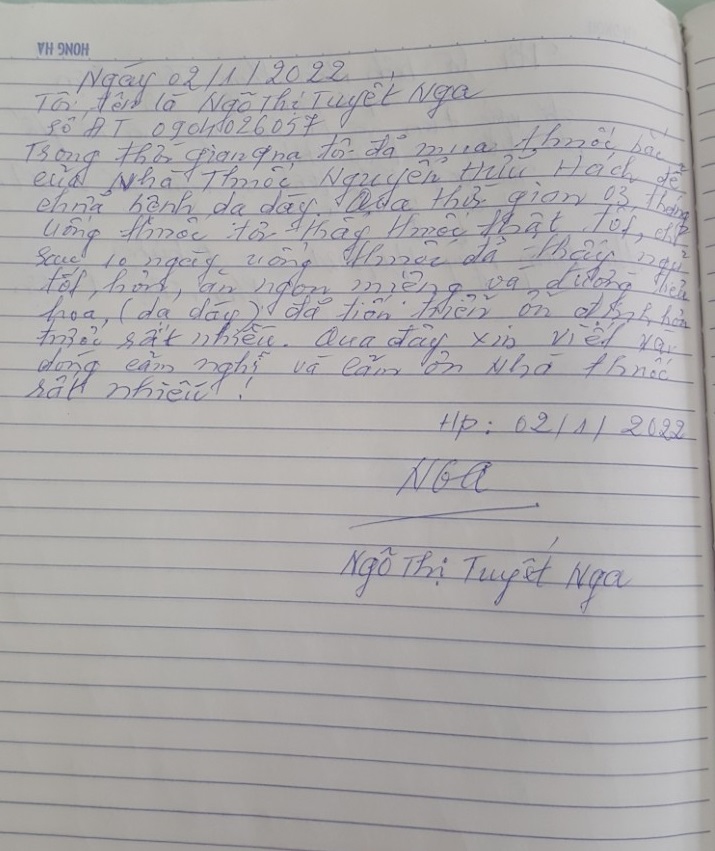 HONG HA
Ngày 02/1/2022
Tôi tên là Ngô Thị Tuyết Nga
số ĐT 0904026057
Trong thời gian qua tôi đã mua thuốc bắc
của Nhà Thuốc Nguyễn Hữu Hách để
chữa bệnh dạ dày. Qua thời gian 03 tháng
uống thuốc tôi thấy thuốc thật tốt, chỉ
sau 10 ngày uống thuốc đã thấy ngủ
tốt hơn, ăn ngon miệng và đường tiêu
hoa, (dạ dày) đã tiến triển ổn định hơn
trước rất nhiều. Qua đây xin viết vài
dòng cảm nghĩ và cảm ơn Nhà thuốc
rất nhiều!
Hp: 02/1/2022
NGA
Ngô Thị Tuyết Nga